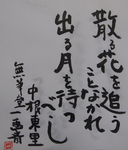 散る花を追う
ことなかれ
出る月を待つ
べし
中根東里
無羊堂一萬斎